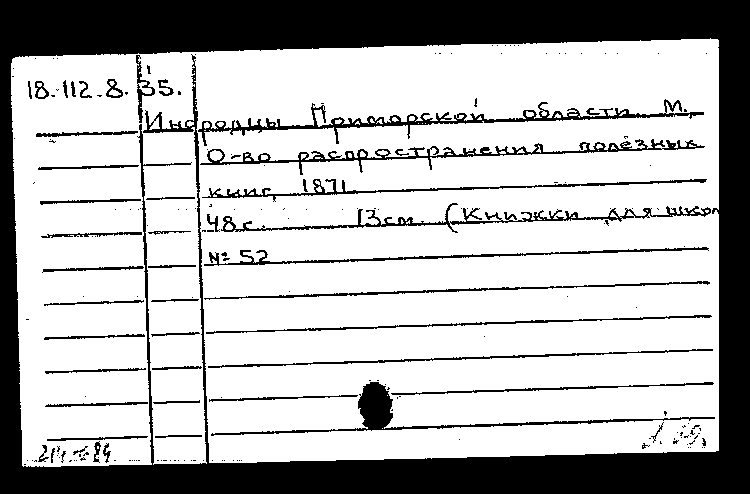 18.112.8.35.
Инородцы Приморской области М.,
О-во распространения полезных
книг, 1871
48 с. 13 см. (Книжки для школ
№ 52